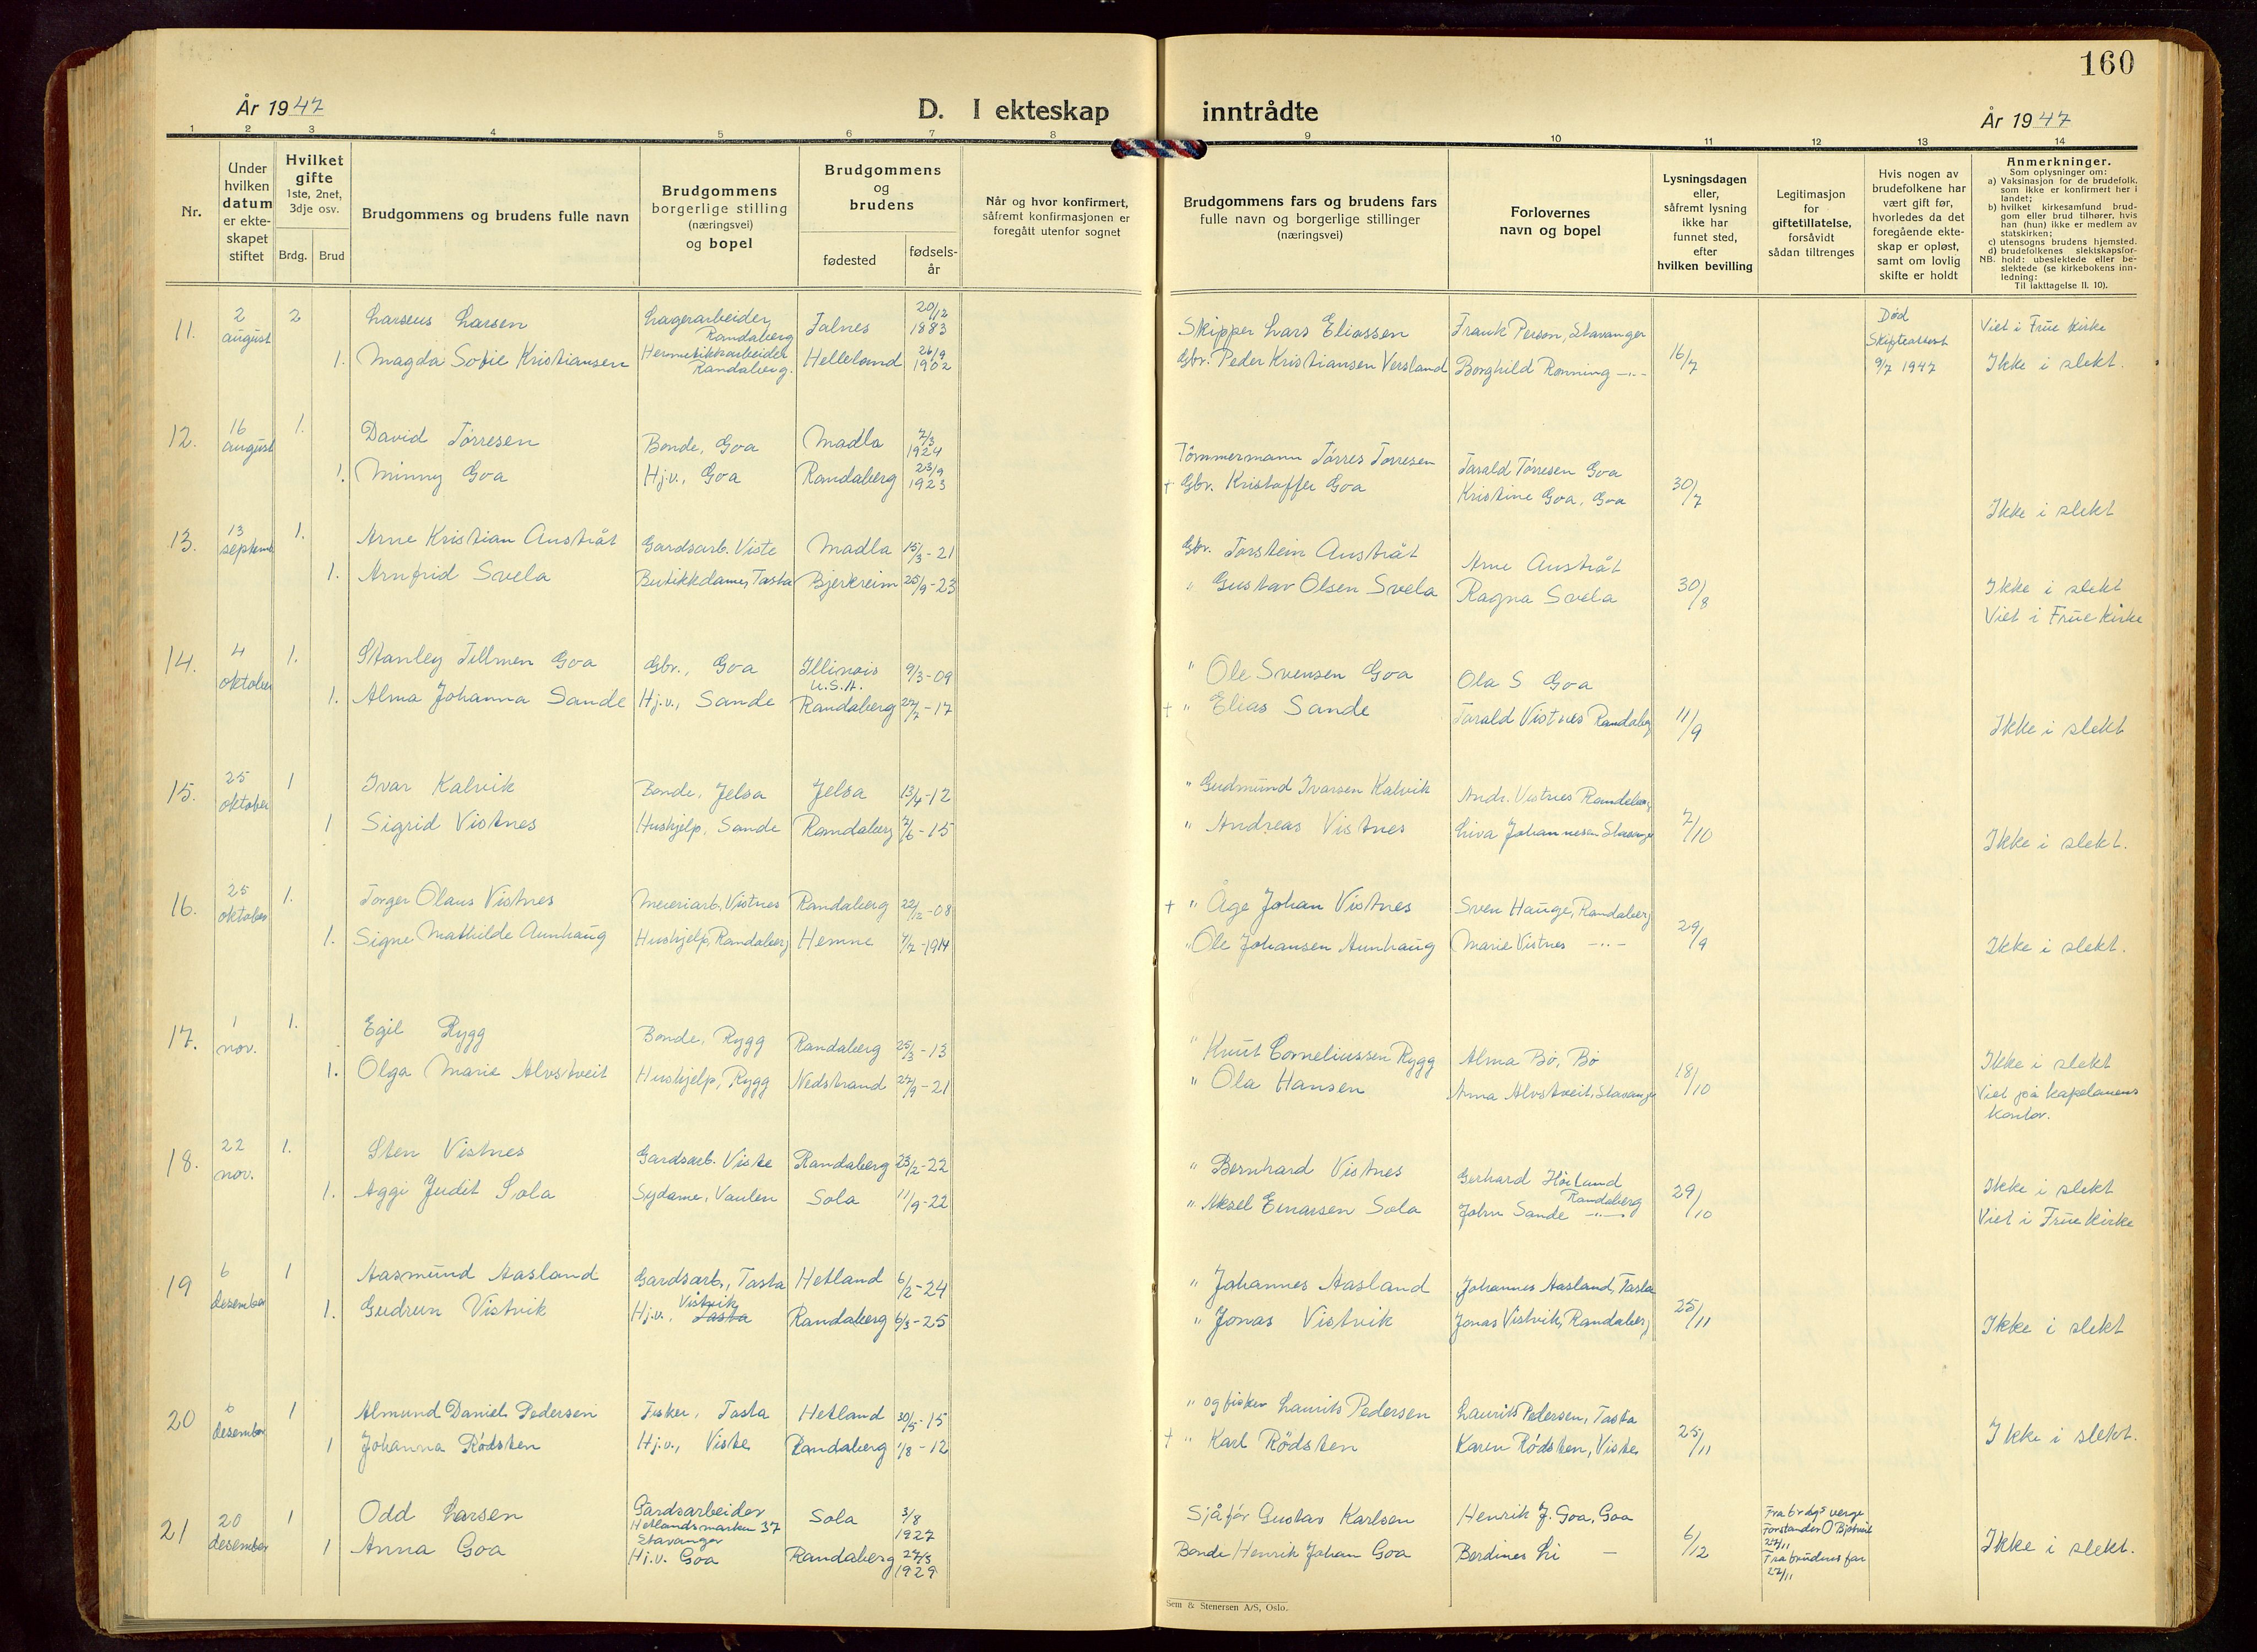 160
År 1947
D. I ekteskap inntrådte
År 1947
1 2 3 4 5 6 7 8 9 10 11 12 13 14
Nr.
Under hvilken datum er ekte-skapet stiftet
Hvilket gifte 1ste, 2net, 3dje osv.
Brdg. Brud
Brudgommens og brudens fulle navn
Brudgommens borgerlige stilling (næringsvei) og bopel
Brudgommens og brudens
fødested
fødsels-år
Når og hvor konfirmert, såfremt konfirmasjonen er foregått utenfor sognet
Brudgommens fars og brudens fars fulle navn og borgerlige stillinger (næringsvei)
Forlovernes navn og bopel
Lysningsdagen eller, såfremt lysning ikke har funnet sted, efter hvilken bevilling
Legitimasjon for giftetillatelse, forsåvidt sådan tiltrenges
Hvis nogen av brudefolkene har vært gift før, hvorledes da det foregående ekte-skap er opløst, samt om lovlig skifte er holdt
Anmerkninger.
Som oplysninger om:
a) Vaksinasjon for de brudefolk, som ikke er konfirmert her i landet;
b) hvilket kirkesamfund brud-gom eller brud tilhører, hvis han (hun) ikke er medlem av statskirken;
c) utensogns brudens hjemsted.
d) brudefolkenes slektskapsfor-hold: ubeslektede eller be-slektede (se kirkebokens inn-ledning:
NB.
Til iakttagelse II. 10).
11. 2 august 2 Larseus Larsen Lagerarbeider, Randaberg Falnes 20/12 1883 Skipper Lars Eliassen Frank Person, Stavanger Død Skifteattest 9/7 1947 Viet i Frue Kirke
1. Magda Sofie Kristiansen Hermetikkarbeider Randaberg. Helleland 26/9 1902 Gbr. Peder Kristiansen Versland Borghild Rønning -"- 16/7 Ikke i slekt.
12. 16 august 1. David Tørresen Bonde, Goa Madla 7/3 1924 Tømmermann Tørres Tørresen Tarald Tørresen Goa
1. Minny Goa Hj.v., Goa Randaberg 23/9 1923 + Gbr. Kristoffer Goa Kristine Goa, Goa 30/7 Ikke i slekt
13. 13 septemb. 1. Arne Kristian Austråt Gardsarb. Viste Madla 15/3-21 Gbr. Torstein Austråt Arne Austråt
1. Arnfrid Svela Butikkdame, Tasta Bjerkreim 25/9-23 " Gustav Olsen Svela Ragna Svela 30/8 Ikke i slekt
Viet i Frue Kirke
14. 4 oktober 1. Stanley Tillmen Goa Gbr., Goa Illinois U.S.A. 9/3-09 " Ole Svensen Goa Ola S Goa
1. Alma Johanna Sande Hj.v., Sande Randaberg 27/7-17 + " Elias Sande Tarald Vistnes Randaberg 11/9 Ikke i slekt
15. 25 oktober 1 Ivar Kalvik Bonde, Jelsa Jelsa 13/4-12 " Gudmund Ivarsen Kalvik Andr. Vistnes Randaberg
1 Sigrid Vistnes Hushjelp, Sande Randaberg 7/6-15 " Andreas Vistnes Liva Johannesen Stavanger 7/10 Ikke i slekt.
16. 25 oktober 1. Torger Olaus Vistnes Meieriarb. Vistnes Randaberg 22/12-08 + " Åge Johan Vistnes Sven Hauge, Randaberg
1. Signe Mathilde Aunhaug Hushjelp, Randaberg Hemne 7/2-1914 " Ole Johansen Aunhaug Marie Vistnes -"- 29/9 Ikke i slekt.
17. 1 nov. 1. Egil Rygg Bonde, Rygg Randaberg 25/3-13 " Knut Corneliussen Rygg Alma Bø, Bø Ikke i slekt
1. Olga Marie Alvstveit Hushjelp, Rygg Nedstrand 27/9-21 " Ola Hansen Anna Alvstveit, Stavanger 18/10 Viet på kapelanens kontor.
18. 22 nov. 1. Sten Vistnes Gardsarb. Viste Randaberg 23/2-22 " Bernhard Vistnes Gerhard Høiland Randaberg Ikke i slekt
1. Aggi Judit Sola Sydame, Vaulen Sola 11/9-22 " Aksel Einarsen Sola John Sande -"- 29/10 Viet i Frue Kirke
19 6 desember 1 Aasmund Aasland Gardsarb., Tasta Hetland 6/2-24 " Johannes Aasland Johannes Aasland, Tasta
1. Gudrun Vistvik Hj.v. Vistvik Tasta Randaberg 6/3-25 " Jonas Vistvik Jonas Vistvik, Randaberg 25/11 Ikke i slekt
20 6 desember 1 Almund Daniel Pedersen Fisker, Tasta Hetland 30/5-15 " og fisker Laurits Pedersen Laurits Pedersen, Tasta
1 Johanna Rødsten Hj.v., Viste Randaberg 1/8-12 + " Karl Rødsten Karen Rødsten, Viste 25/11 Ikke i slekt.
21 20 desember 1 Odd Larsen Gardsarbeider Hetlandsmarken 37 Stavanger Sola 3/8 1927 Sjåfør Gustav Karlsen Henrik J. Goa, Goa Fra brdgs verge Forstander O Bjotveit 27/11
1 Anna Goa Hj.v. Goa Randaberg 27/3 1929 Bonde Henrik Johan Goa Berdines Li - 6/12 Fra brudens far 27/11 Ikke i slekt.
Sem & Stenersen A/S, Oslo.